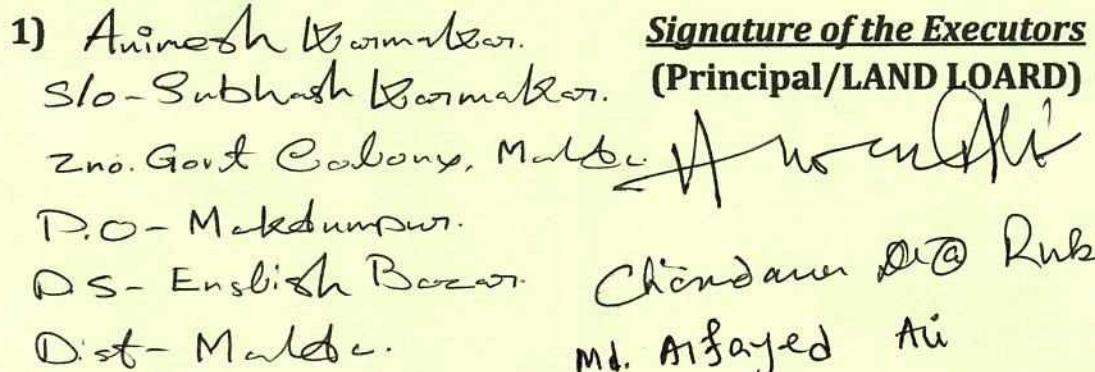 1) Animesh Karmakar.
S/o - Subhash Karmakar.
2no. Govt Colony, Malda.
P.O - Makdumpur.
P S - English Bazar.
Dist - Malda.
Signature of the Executors
(Principal/LAND LOARD)
Ali
Chandana De @ Rub
Md. Alfayed Ali